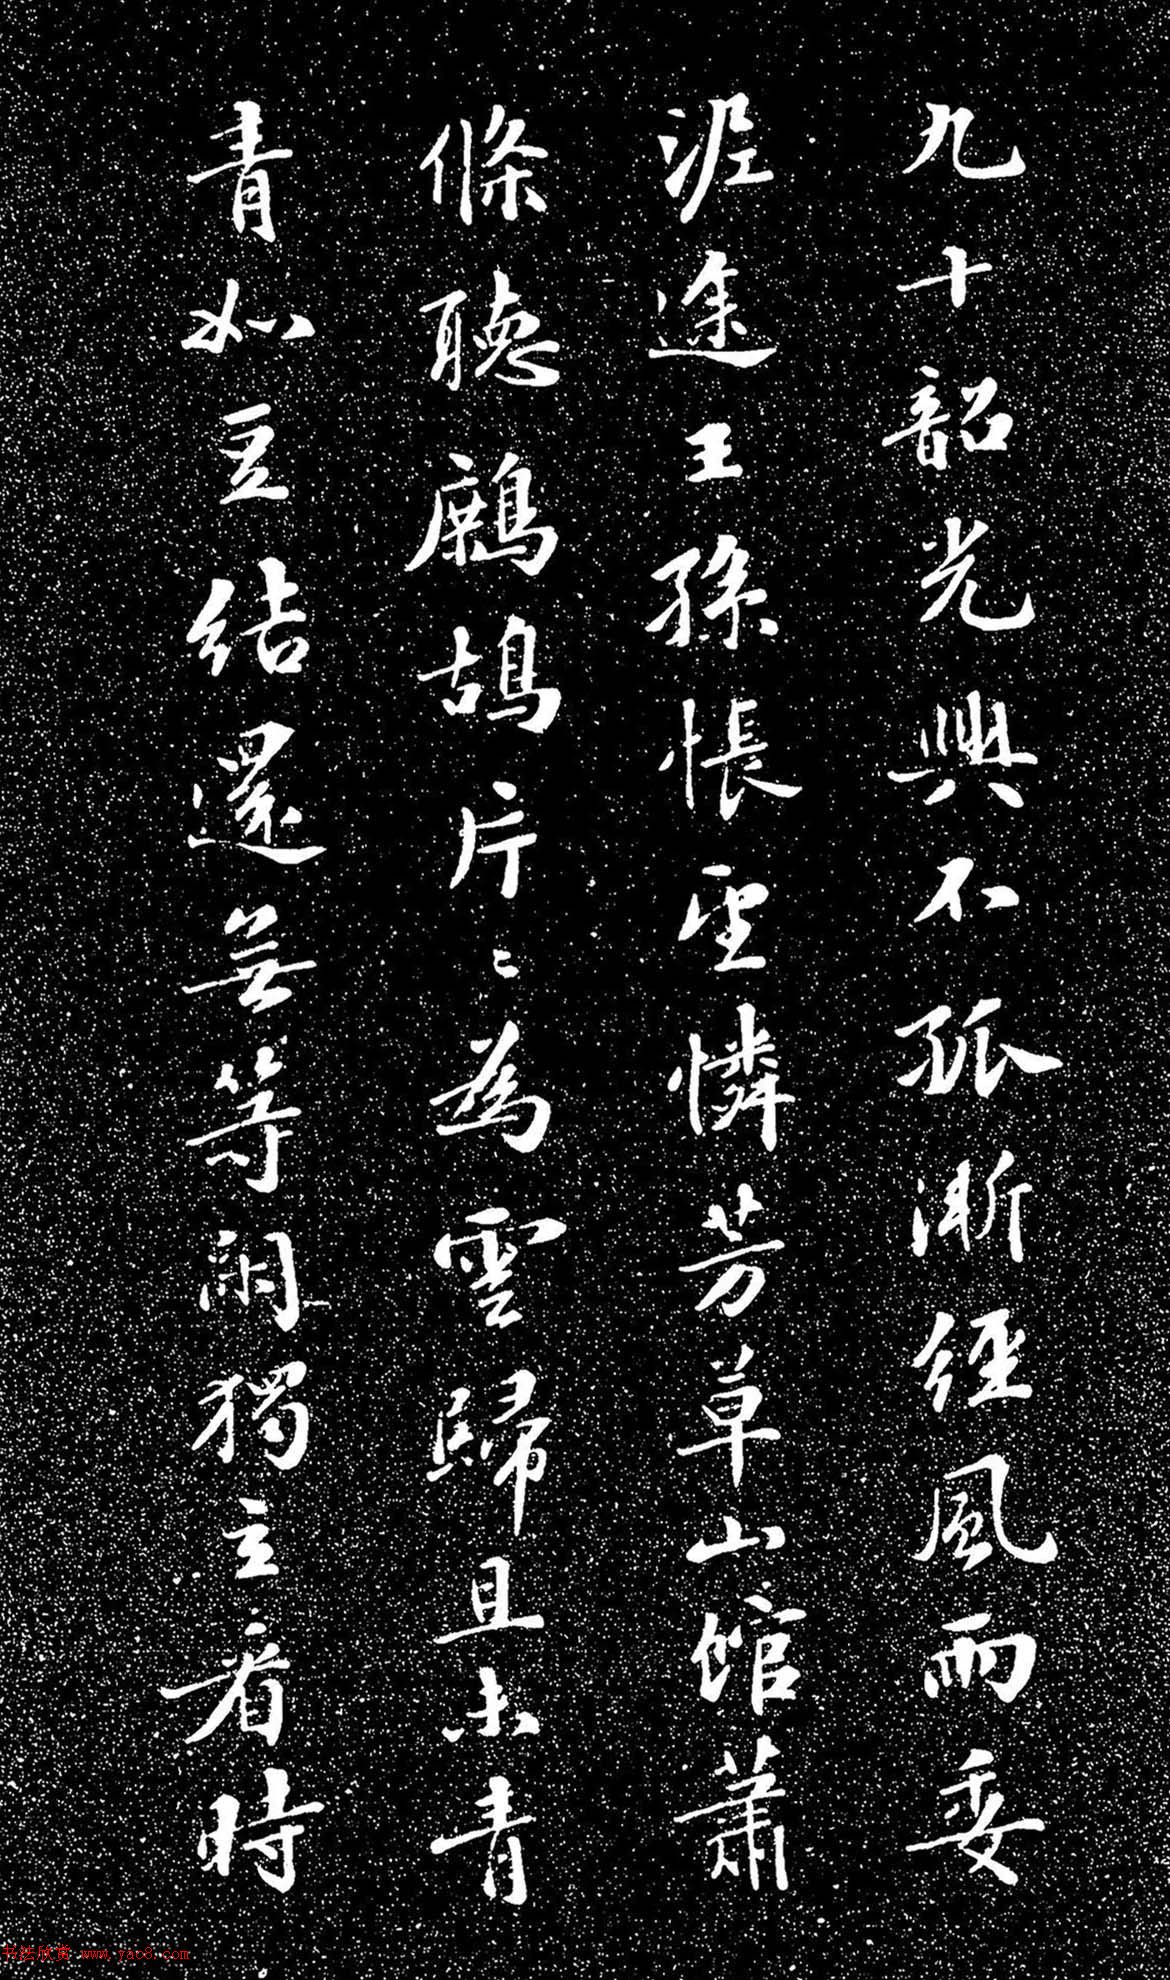 九十韶光興不孤漸經風雨委
泥途王孫悵望憐芳草山館蕭
條聽鷓鴣片〻為雲歸且未青
青如豆結還無等閑獨立看時
书法欣赏 www.yac8.com